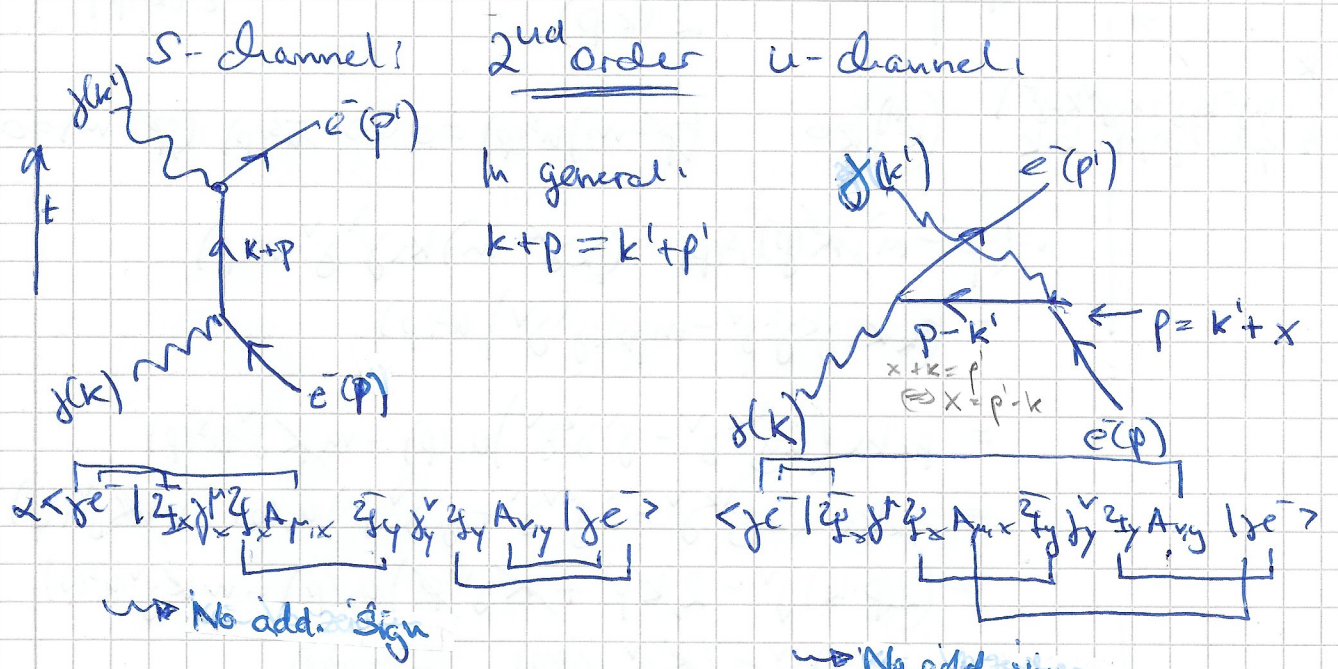 S-channel:
2nd order
u-channel:
γ(k')
e⁻(p')
t
k+p
γ(k)
e⁻(p)
In general:
k+p = k'+p'
γ(k')
e⁻(p')
p-k'
p = k'+x
x+k=p'
⇔ x=p'-k
γ(k)
e⁻(p)
α <γe⁻ | Ψ̄ₓ γ^μₓ Ψₓ A_μ,x Ψ̄_y γ^ν_y Ψ_y A_ν,y | γe⁻>
<γe⁻ | Ψ̄ₓ γ^μₓ Ψₓ A_μ,x Ψ̄_y γ^ν_y Ψ_y A_ν,y | γe⁻>
No add. sign
No add.